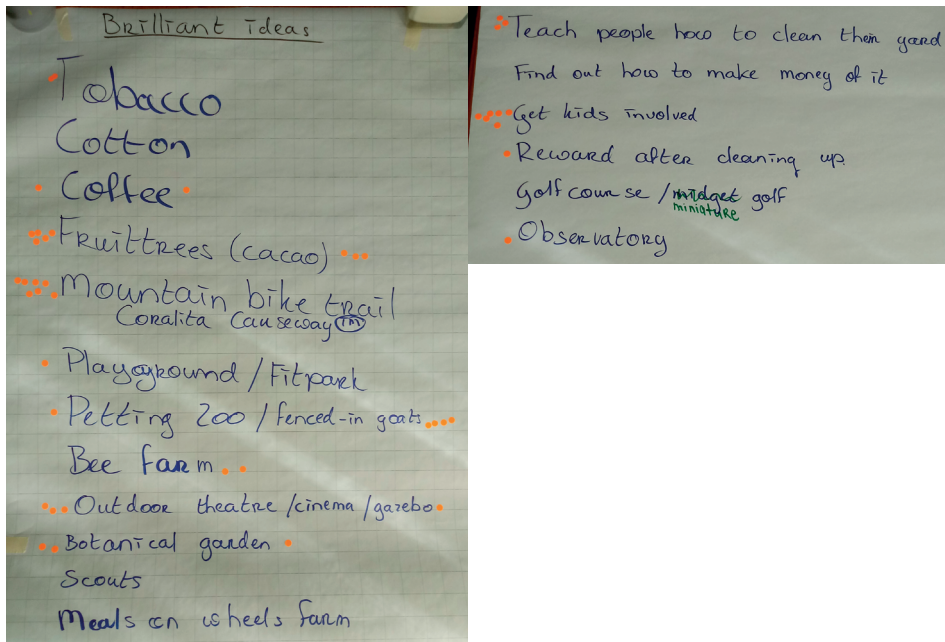 Brilliant ideas
Tobacco
Cotton
Coffee
Fruittrees (cacao)
Mountain bike trail
Coralita Causeway TM
Playground / Fitpark
Petting zoo / fenced-in goats
Bee farm
Outdoor theatre / cinema / gazebo
Botanical garden
Scouts
Meals on wheels farm
Teach people how to clean their yard
Find out how to make money of it
Get kids involved
Reward after cleaning up
Golf course / midget golf
miniature
Observatory